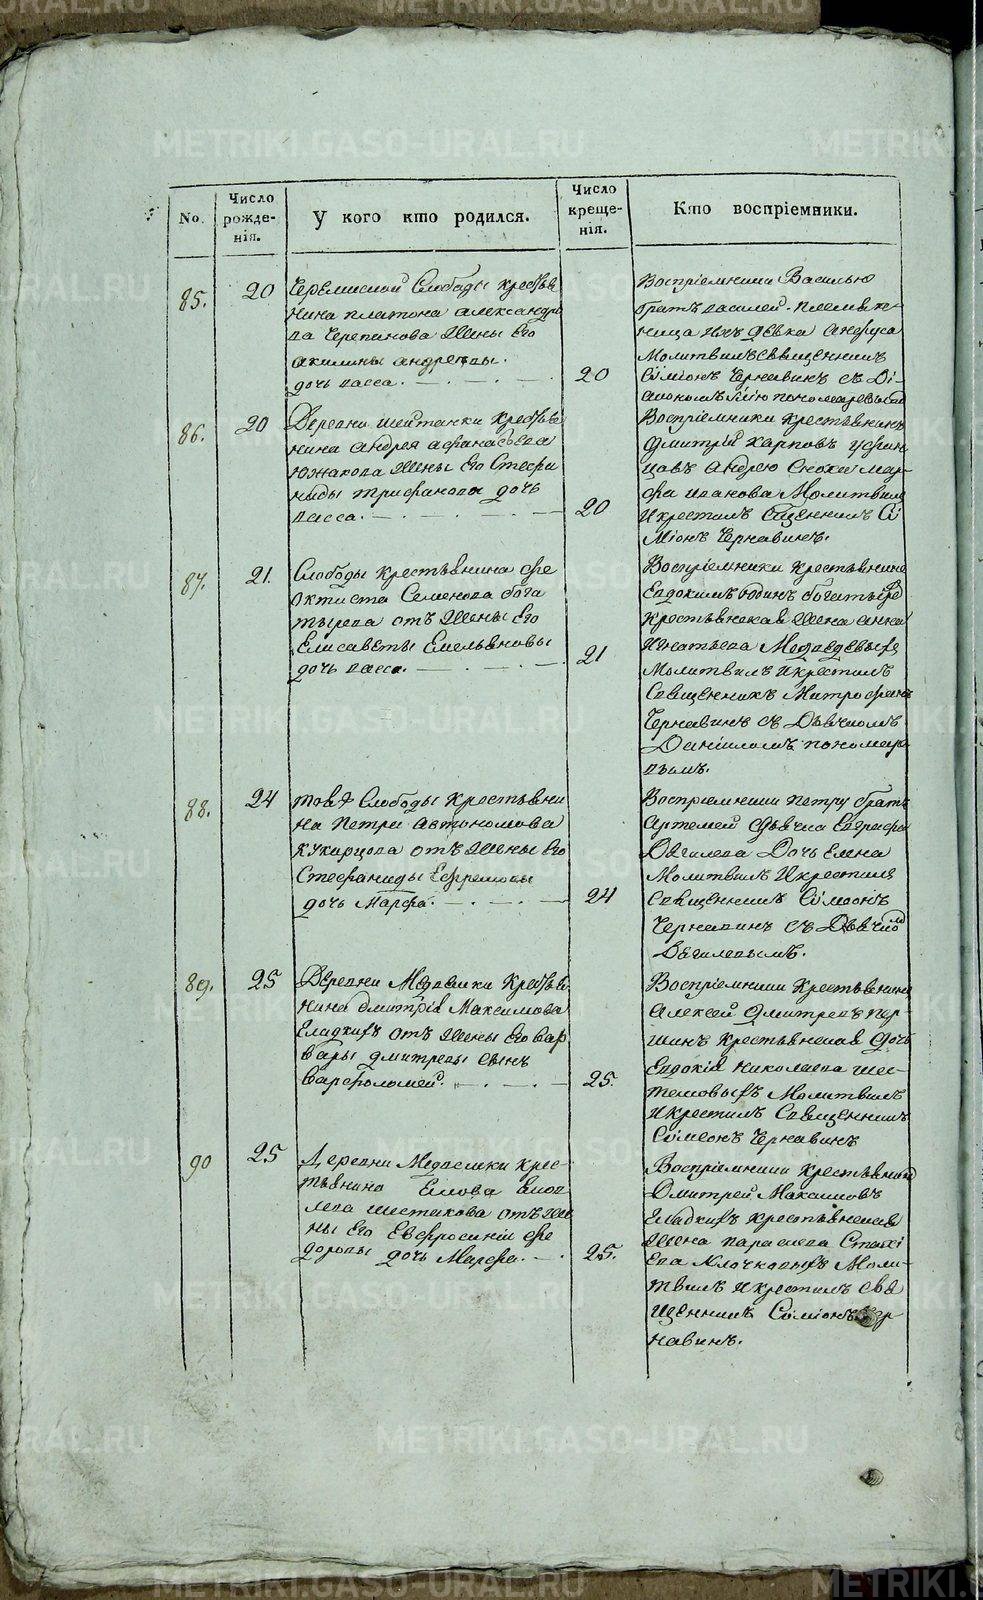 No.
Число
рожде-
нія.
У кого кто родился.
Число
креще-
нія.
Кто воспріемники.
85.
20
Черемиской Слободы крестья
нина платона александро
ва Черепанова Жены Его
акилины андреевы.
дочь васса.
20
Воспріемники Василью
братъ василей - племян
ница ихъ девка анфуса
Молитвилъ священникъ
Сѵміонъ Чернавинъ съ Ді-
акономъ пономаревымъ
86.
20
Деревни шайтанки крестья
нина андрея афанасьева
южакова Жены Его Стефа
ниды трифанова дочь
васса.
20
Воспріемники крестьянинъ
дмитрій карповъ
андрею Сноха мар-
фа иванова Молитвилъ
и крестилъ Священникъ Сѵ
міонъ Чернавинъ.
87.
21.
Слободы крестьянина фе
октиста Семенова бога
тырева отъ Жены Его
Елисаветы Емельяновы
дочь васса.
21
Воспріемники крестьянинъ
Евдокимъ Юдинъ богатырев
крестьянская Жена анна
игнатьева Медведевыхъ
Молитвилъ и крестилъ
Священникъ Митрофанъ
Чернавинъ съ Дьячкомъ
Даніиломъ пономаре
вымъ.
88.
24
тояже Слободы крестьяни
на Петра автономова
кукарцова отъ Жены Его
Стефаниды Ефремовы
дочь Марфа.
24
Воспріемники петру братъ
Артемей дьячка Евграфа
Дягилева Дочь Елена
Молитвилъ и крестилъ
Священникъ Сѵмеонъ
Чернавинъ съ Дьячкомъ
Дягилевымъ.
89.
25
Деревни Медяшки крестья
нина дмитрія Максимова
Гладкихъ отъ Жены Его вар
вары дмитревы сынъ
варфоломей.
25.
Воспріемники крестьянинъ
алексей дмитревъ пер-
шинъ крестьянская дочь
Евдокія николаева шес-
таковыхъ Молитвилъ
и крестилъ Священникъ
Сѵмеонъ Чернавинъ
90
25
Деревни Медяшки крес-
тьянина
шестакова отъ Же
ны Его Евфросиніи фе
доровы дочь Марфа.
25.
Воспріемники крестьянинъ
Дмитрей Максимовъ
Гладкихъ крестьянская
Жена параскева
Ева Клочковыхъ Моли-
твилъ и крестилъ Свя
щенникъ Сѵміонъ Чер
навинъ.
METRIKI.GASO-URAL.RU